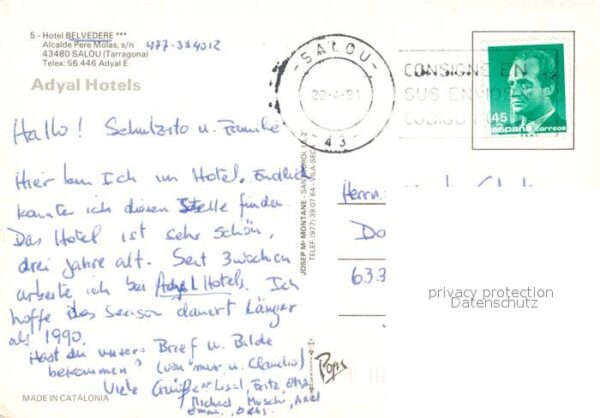 5 - Hotel BELVEDERE ***
Alcalde Pere Molas, s/n 977-384012
43480 SALOU (Tarragona)
Telex: 56 446 Adyal E
Adyal Hotels
Hallo! Schulzito u. Familie
Hier bin Ich im Hotel. Endlich
konnte ich diesen Stelle finden
Das Hotel ist sehr schön,
drei Jahre alt. Seit 3 Wochen
arbeite ich bei Adyal Hotels. Ich
hoffe das Season dauert länger
als 1990.
Hast du unsere Brief u. Bilde
bekommen? (von mir u. Claudio)
Viele Grüße Fritz
Michael Axel
MADE IN CATALONIA
JOSEP Mª MONTANE
TELEF. (977) 39 07 64 - VILA-SECA
- SALOU -
43
CONSIGNE EN
SUS ENVIOS
45
españa correos
Herrn
Do
633
privacy protection
Datenschutz